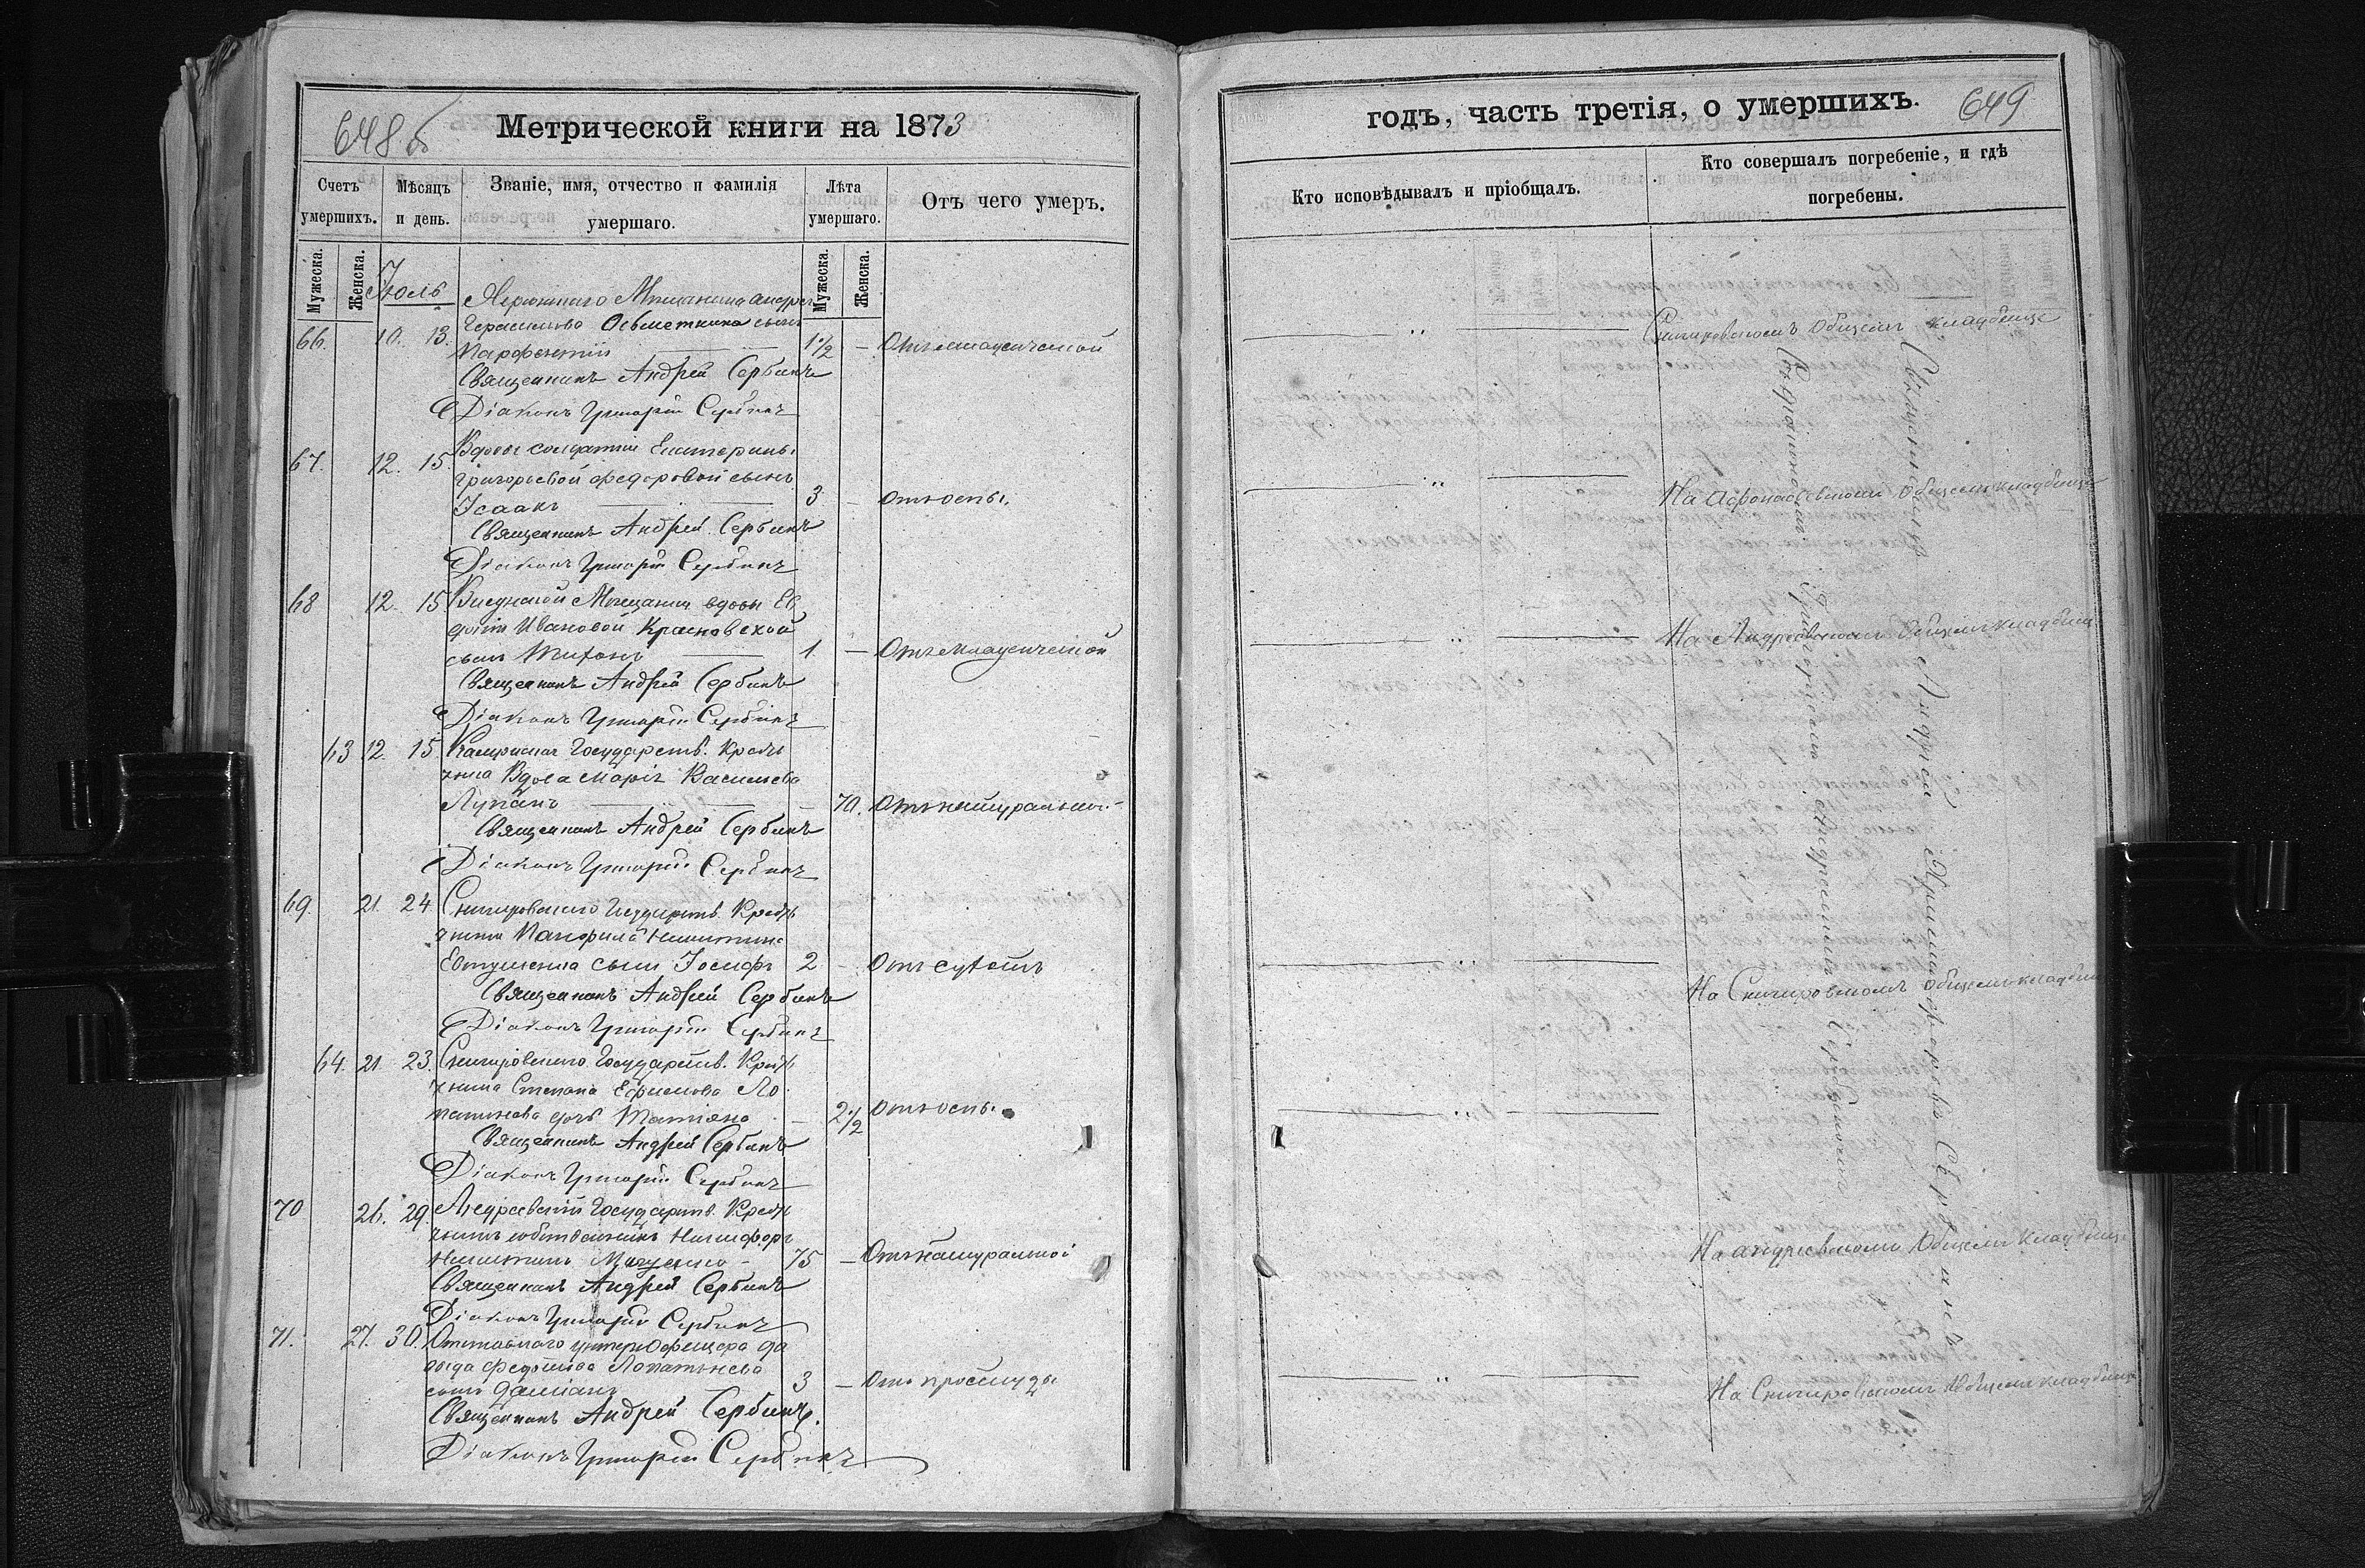 648 б
Метрической книги на 1873
Счетъ умершихъ.
Мѣсяцъ и день.
Званіе, имя, отчество и фамилія умершаго.
Лѣта умершаго.
Отъ чего умеръ.
Мужеска.
Женска.
Мужеска.
Женска.
Іюль
Мѣщанина Андрея
66. 10. 13. Герасимова сынъ
Парфентій 1 1/2 — Отъ младенческой
Священникъ Андрей Сербинъ
Діаконъ Григорій Сербинъ
67. 12. 15. Вдовы солдатки Екатерины
Григорьевой Федоровой сынъ
Исаакъ 3 — Отъ оспы.
Священникъ Андрей Сербинъ
Діаконъ Григорій Сербинъ
68 12. 15 Мѣщанки вдовы Ев
докіи Ивановой Красновской
сынъ Тихонъ 1. — Отъ младенческой
Священникъ Андрей Сербинъ
Діаконъ Григорій Сербинъ
63 12. 15. Государств. Кресть
янка Вдова Марія Васильева
Лупанъ — 70. Отъ натуральной
Священникъ Андрей Сербинъ
Діаконъ Григорій Сербинъ
69. 21. 24 Снигировского Государств. Кресть
янина Панфила Никитина
Евтушенка сынъ Іосифъ 2 — Отъ сухотъ
Священникъ Андрей Сербинъ
Діаконъ Григорій Сербинъ
64. 21. 23. Снигировского Государств. Кресть
янина Степана Ефимова Ло
патнева дочь Татіана — 2 1/2 Отъ оспы.
Священникъ Андрей Сербинъ
Діаконъ Григорій Сербинъ
70 26. 29 Андреевскій Государств. Кресть
янинъ собственникъ Никифоръ
Никитинъ 75 — Отъ натуральной
Священникъ Андрей Сербинъ
Діаконъ Григорій Сербинъ
71. 27. 30. Отставного унтеръ Офицера Да
выда Федотова Лопатнева
сынъ Даміанъ 3 — Отъ простуды
Священникъ Андрей Сербинъ.
Діаконъ Григорій Сербинъ
годъ, часть третія, о умершихъ.
649
Кто исповѣдывалъ и пріобщалъ.
Кто совершалъ погребеніе, и гдѣ погребены.
Снигировскомъ Общемъ кладбище
На Афонасьевскомъ Общемъ кладбище
На Андреевскомъ Общемъ кладбищ
На Снигировскомъ Общемъ кладбищ
На Андреевскомъ Общемъ кладбище
На Снигировскомъ Общемъ кладбище
Священникъ Андрей Сербинъ
Григоріемъ Андреевымъ Сербинымъ